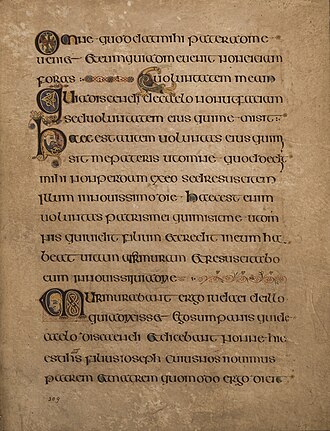 Omne quod dat mihi pater ad me
ueniet et eum qui ad me uenit non eieciam
foras uoluntatem meam
Quia discendi de caelo non ut faciam
sed uoluntatem eius qui me misit
Haec est autem uoluntas eius qui mi
sit me patris ut omne quod dedit
mihi non perdam ex eo sed resuscitem
illum in nouissimo die haec est enim
uoluntas patris mei qui misit me ut om
nis qui uidit filium et credit in eum ha
beat uitam aeternam et resuscitabo
eum in nouissimo die
Murmurabant ergo iudaei de illo
quia dixisset ego sum panis qui de
caelo discendi et dicebant nonne hic
est ihs filius ioseph cuius nos nouimus
patrem et matrem quomodo ergo dicit
309